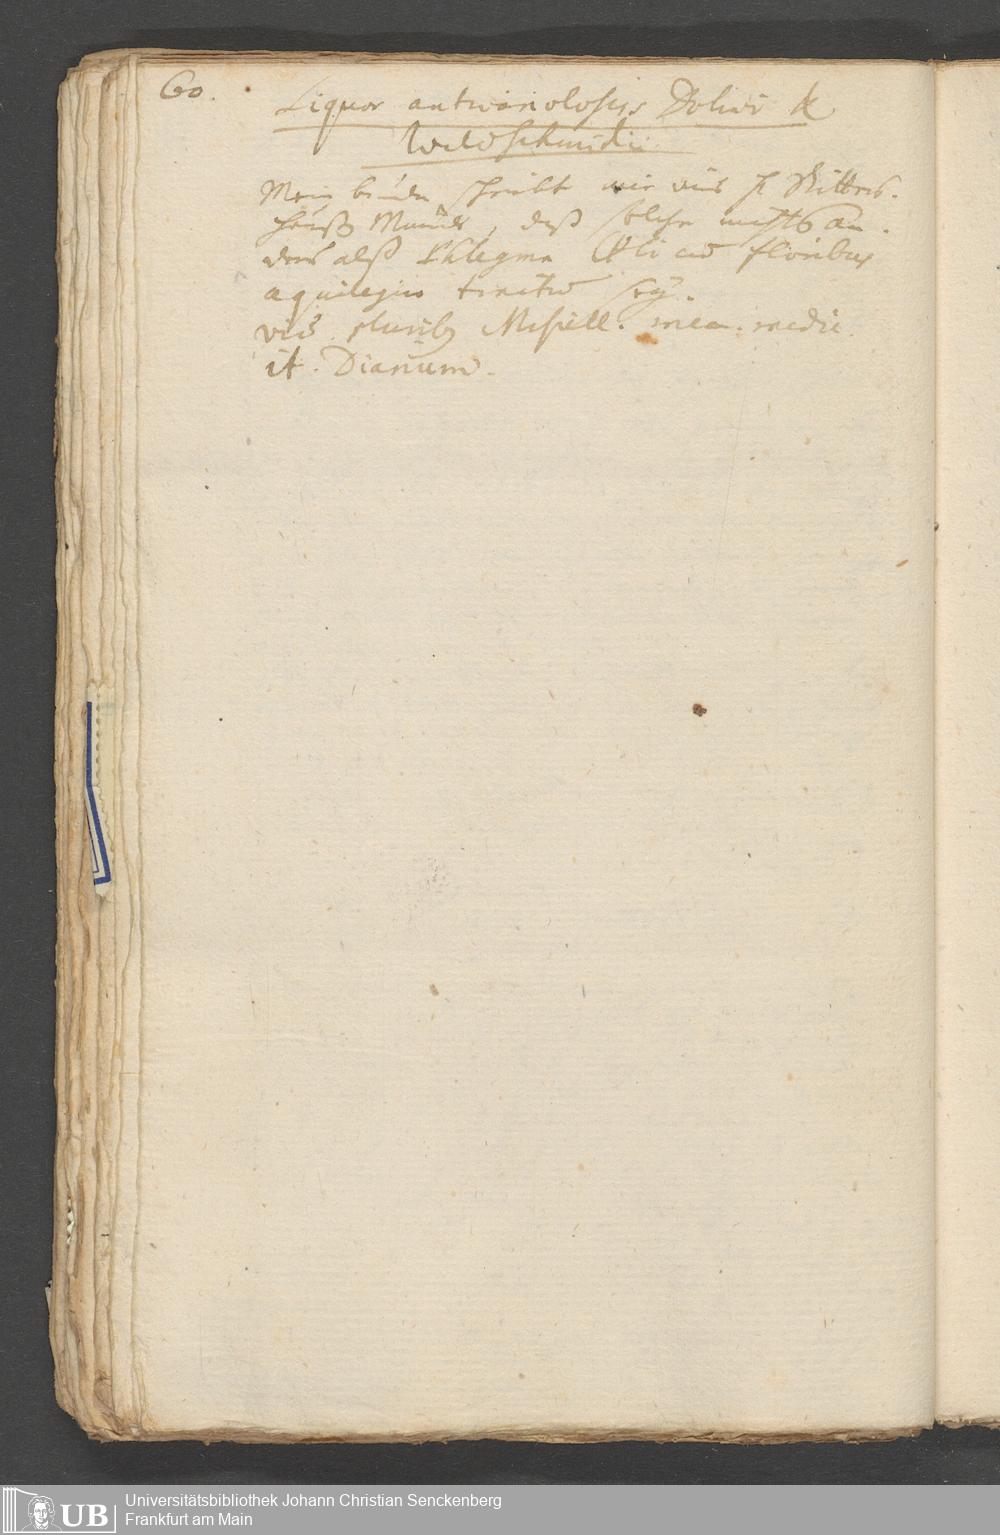 60.
Liquor antivariolosus Dolaei &
Waldschmidii
Mein bruder schreibt mir aus H. Ritters-
haußs Munde, daß solcher nichts an-
ders alß Phlegma Vitrioli cum floribus
aquilegiae tinctum sey.
vid. pluribus Miscell. mea. medic.
it. Diarium.
UB
Universitätsbibliothek Johann Christian Senckenberg
Frankfurt am Main